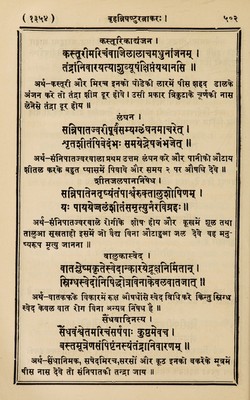 ( १३५४ ) बृहन्निघण्टुरत्नाकरः । ५०२
कस्तूरिकाद्यंजन ।
कस्तूरीमरिचंवाजिलालाचमधुनांजनम् ।
तंद्रांनिवारयत्याशुव्यूषंक्षितंयथानसि ॥
अर्थ-कस्तूरी और मिरच इनको घोडेकी लारमें पीस शहद डालके
अंजन करे तो तंद्रा शीघ्र दूर होय । उसी प्रकार त्रिकुटाके चूर्णकी नास
लेनेसे तंद्रा दूर होय ॥
लंघन ।
सन्निपातज्वरीपूर्वंसम्यग्लंघनमाचरेत् ।
शृतशीतंपिबेदंभः समयेभेषजंभजेत् ॥
अर्थ-संनिपातज्वरवाला प्रथम उत्तम लंघन करे और पानीको औंटाय
शीतल करके बहुत प्यासमें पिवावे और समय २ पर औषधि देवे ॥
शीतजलपाननिषेध ।
सन्निपातेनतृष्यंतंपार्श्वरुक्तालुशोषिणम् ।
यः पाययेज्जलंशीतंसमृत्युर्नरविग्रहः ॥
अर्थ-संनिपातज्वरवाले रोगीके शोष होय और कूखमें शूल तथा
तालुआ सूखताहो इसमें जो वैद्य विना औंटाहुआ जल देवे वह मनु-
ष्यरूप मृत्यु जानना ॥
वालुकास्वेद ।
वातश्लेष्मकृतेस्वेदान्कारयेद्रूक्षनिर्मितान् ।
स्निग्धस्वेदोनिषिद्धोत्रविनाकेवलवातजात् ॥
अर्थ-वातकफके विकारमें रूक्ष औषधोंसे स्वेद विधि करे किन्तु स्निग्ध
स्वेद केवल वात रोग विना अन्यत्र निषेध है ॥
सैंधवादिनस्य ।
सैंधवंश्वेतमरिचंसर्षपाः कुष्ठमेवच ।
वस्तमूत्रेणसंपिष्टंनस्यंतंद्रानिवारणम् ॥
अर्थ-सैंधानिमक, सपेदमिरच,सरसों और कूठ इनको बकरेके मूत्रमें
पीस नास देवे तो संनिपातकी तन्द्रा जाय ॥